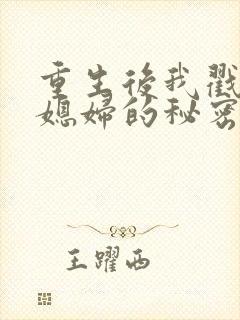 重生後我戳
媳婦的秘密
王躍西